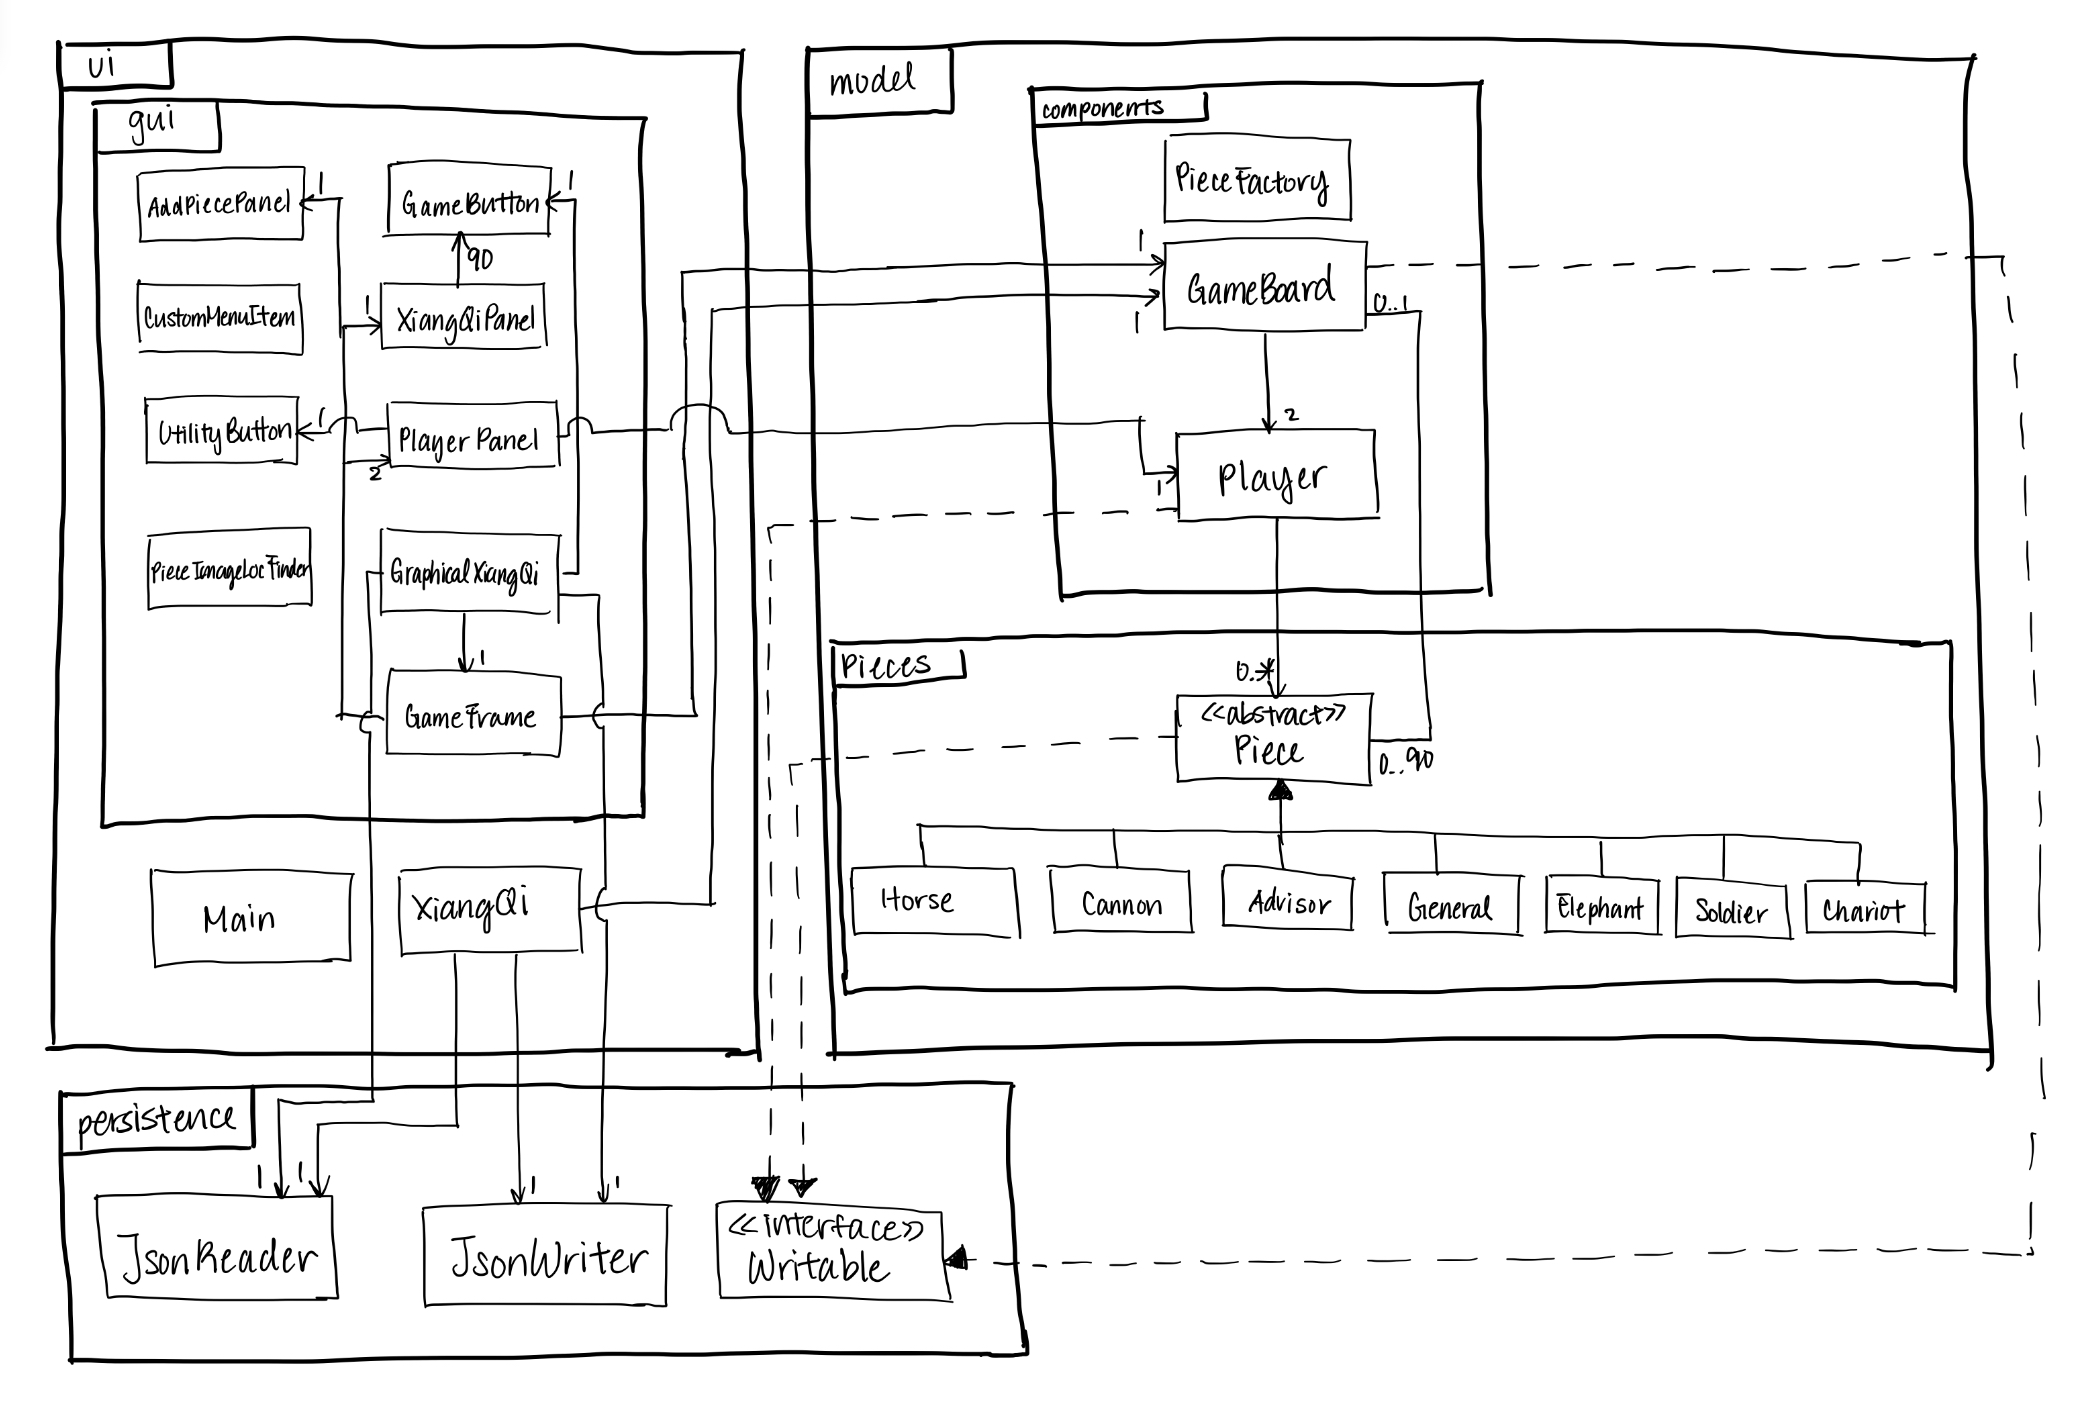 ui
gui
AddPiecePanel
1
GameButton
1
90
CustomMenuItem
1
XiangQiPanel
UtilityButton
1
Player Panel
2
PieceImageLocFinder
GraphicalXiangQi
1
GameFrame
Main
XiangQi
model
components
PieceFactory
1
GameBoard
1
0..1
2
Player
1
Pieces
0..*
<<abstract>>
Piece
0..90
Horse
Cannon
Advisor
General
Elephant
Soldier
Chariot
persistence
1
1
1
1
JsonReader
JsonWriter
<<interface>>
Writable